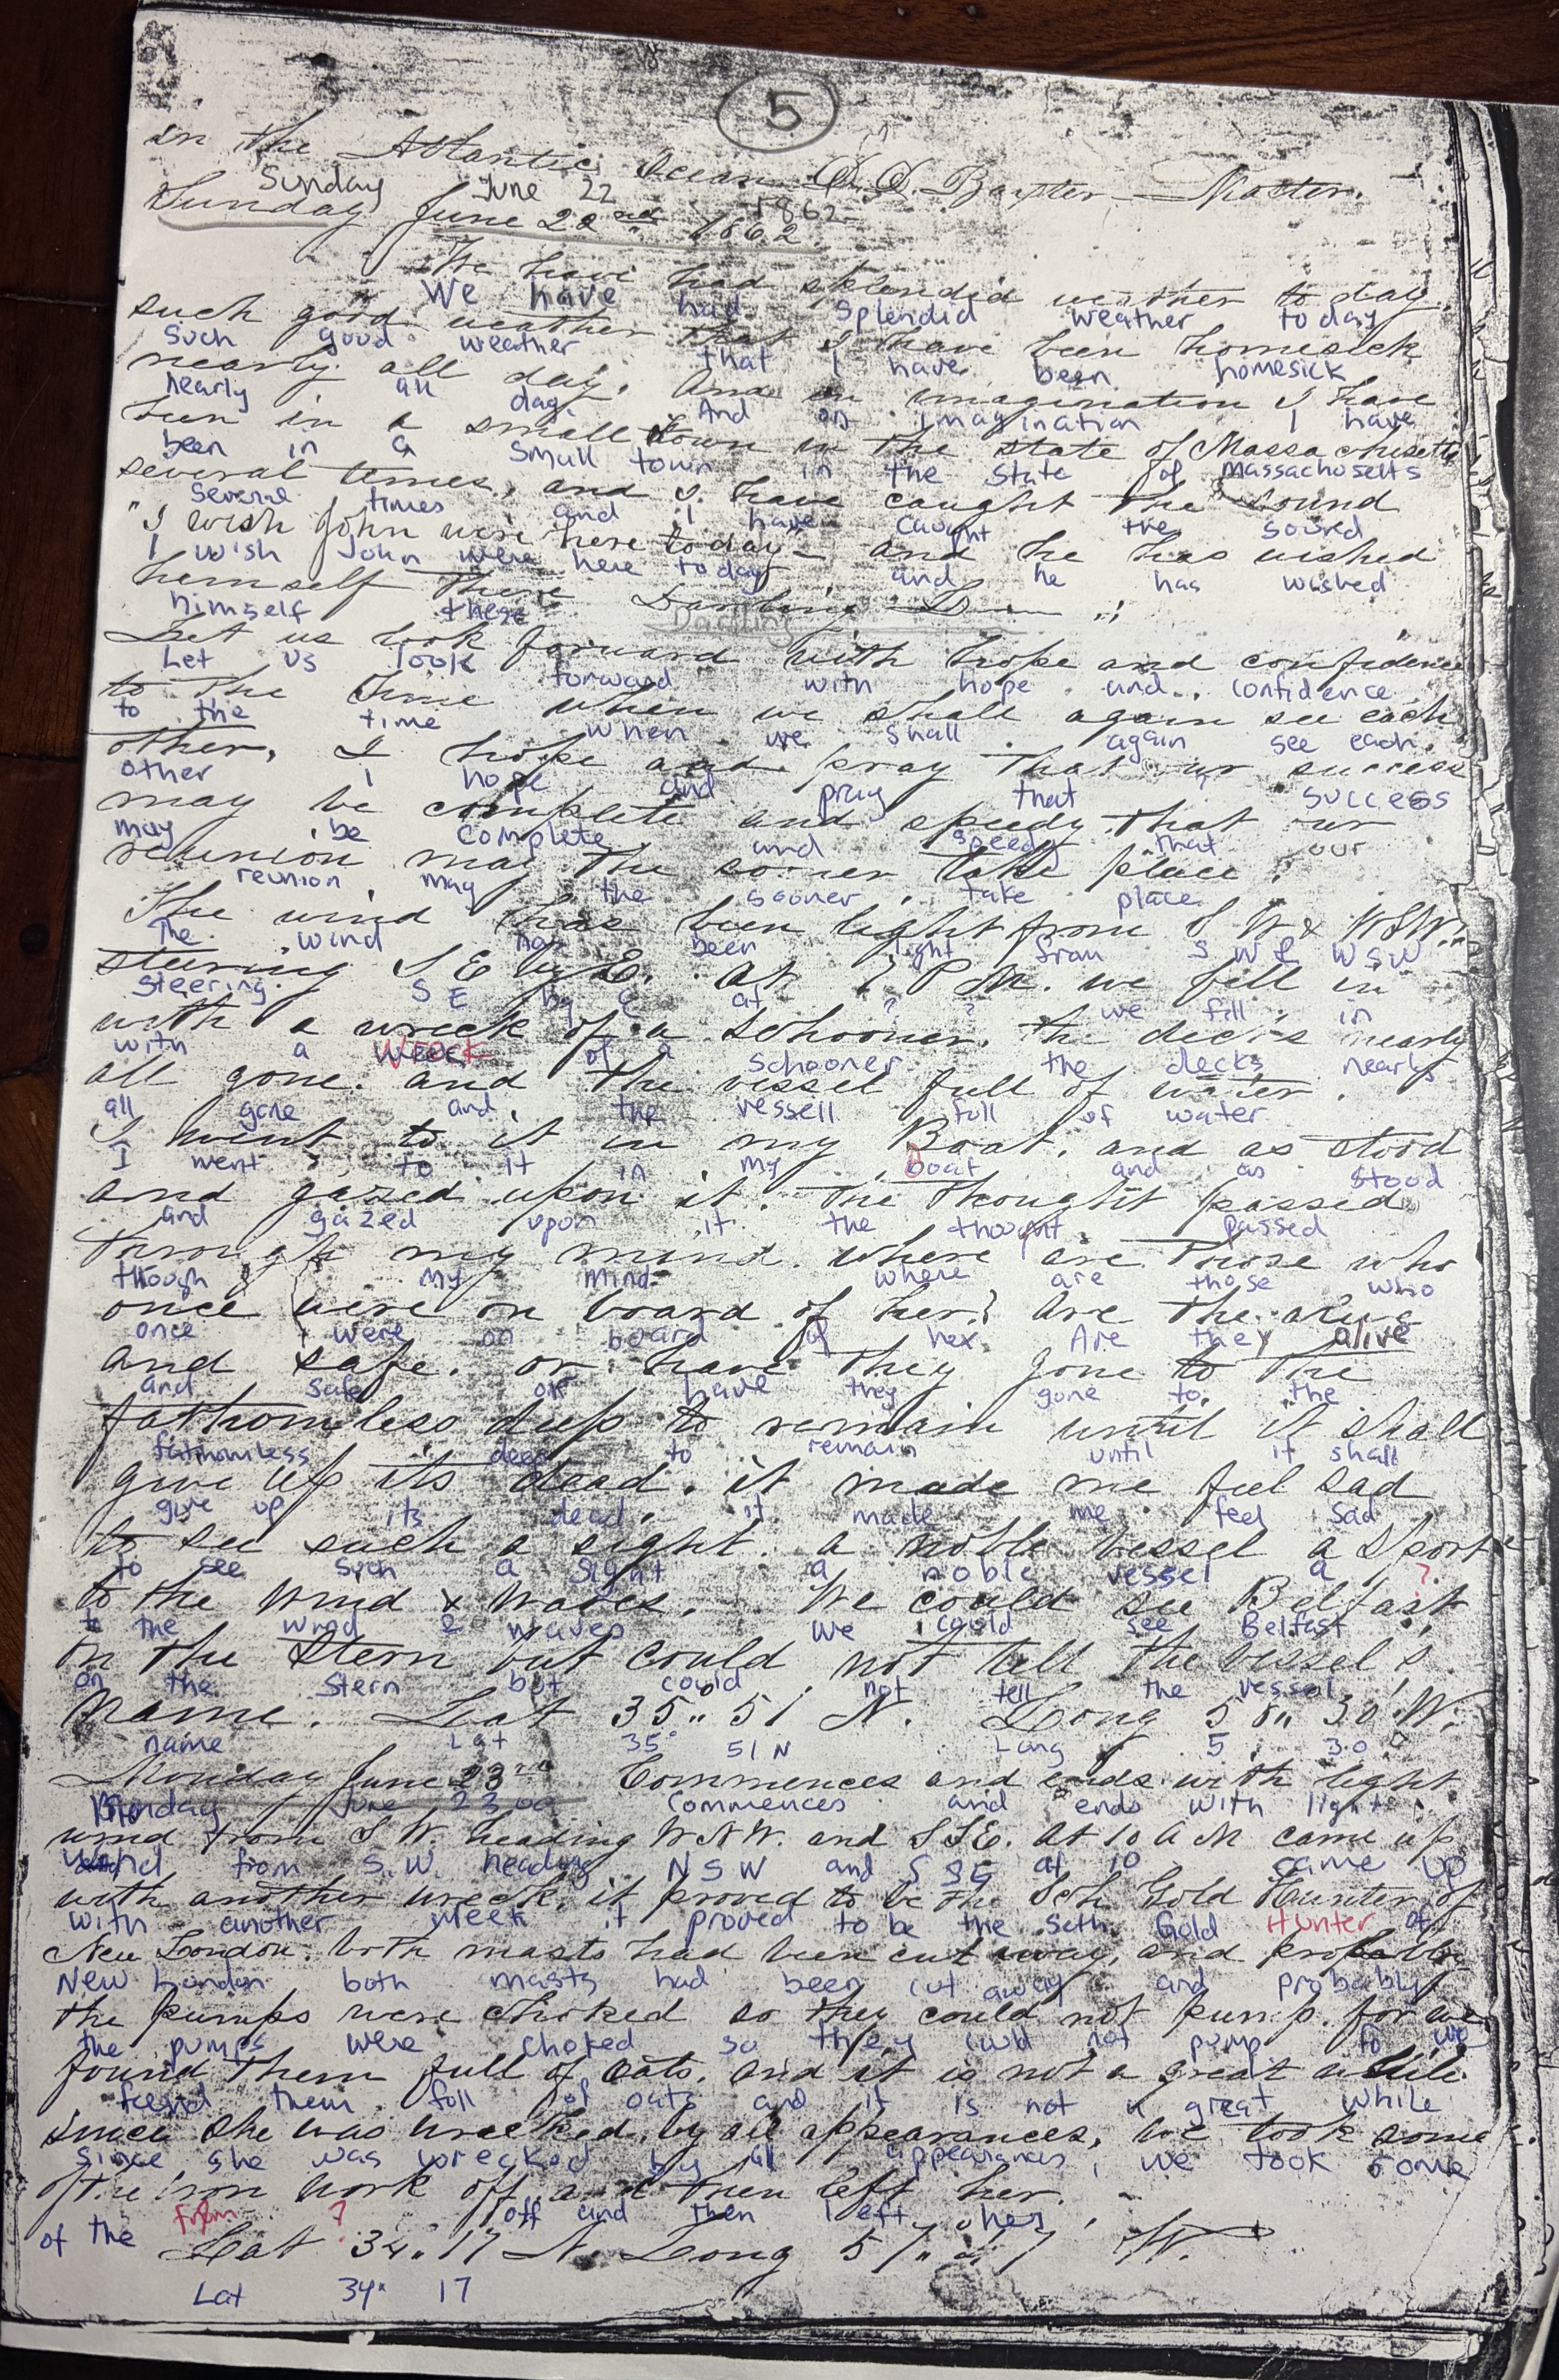 5
in the Atlantic Ocean D.D. Baxter Master.
Sunday June 22 1862
Sunday June 22nd 1862.
We have had splendid weather to day,
We have had splendid weather today
such good weather that I have been homesick
Such good weather that I have been homesick
nearly all day. And in imagination I have
nearly all day. And on imagination I have
been in a small town in the state of Massachusetts
been in a small town in the state of Massachosetts
several times, and I have caught the sound
several times and I have caught the sound
"I wish John were here to day" and he has wished
I wish John were here today and he has wished
himself there Darling
himself there Darling
Let us look forward with hope and confidence
Let us look forward with hope and confidence
to the time when we shall again see each
to the time when we shall again see each
other, I hope and pray that our success
other I hope and pray that success
may be complete and speedy that our
may be complete and speedy that our
reunion may the sooner take place.
reunion may the sooner take place
The wind has been light from S W & WSW.
The wind has been light from S W & WSW
steering S E by E. at 7 P M. we fell in
steering S E by E at ? ? we fill in
with a wreck of a schooner. the decks nearly
with a wreck of a schooner the decks nearly
all gone. and the vessel full of water.
all gone and the vessell full of water
I went to it in my Boat, and as stood
I went to it in my boat and as stood
and gazed upon it. the thought passed
and gazed upon it the thought passed
through my mind. where are those who
though my mind where are those who
once were on board of her? are the alive
once were on board of her Are they alive
and safe. or have they gone to the
and safe or have they gone to the
fathomless deep to remain until it shall
fathomless deep to remain until it shall
give up its dead. it made me feel sad
give up its dead. it made me feel sad
to see such a sight. a noble vessel a sport
to see such a sight a noble vessel a ?
to the wind & waves. We could see Belfast
to the wind & waves We could see Belfast
on the Stern but could not tell the vessel's
on the stern but could not tell the vessel
name. Lat 35" 51 N. Long 58" 30 W.
name Lat 35° 51 N Long 5 30
Monday June 23rd Commences and ends with light
Monday June 23 Commences and ends with light
wind from S W. heading W N W. and S S E. At 10 A M came up
wind from S.W. heading N S W and S SE at 10 came up
with another wreck, it proved to be the Sch Gold Hunter of
with another week it proved to be the Seth Gold Hunter of
New London. both masts had been cut away, and probably
New London both masts had been cut away and probably
the pumps were choked so they could not pump. for we
the pumps were choked so they culd not pump fo we
found them full of oats. and it is not a great while
found them full of oats and it is not a great while
since she was wrecked, by all appearances, we took some
since she was wrecked by all appearances, we took some
of the iron work off. and then left her.
of the from ? off and then left her
Lat 34" 17 N. Long 57" 7 W.
Lat 34° 17